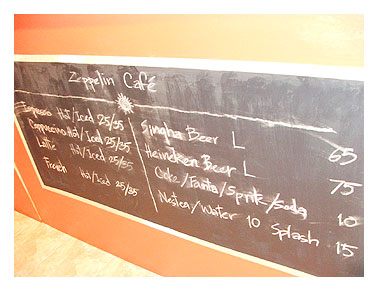 Zeppelin Café
Espresso Hot/Iced 25/35
Cappuccino Hot/Iced 25/35
Latte Hot/Iced 25/35
French Hot/Iced 25/35
Singha Beer L 65
Heineken Beer L 75
Coke/Fanta/Sprite/Soda 10
Nestea/Water 10 Splash 15